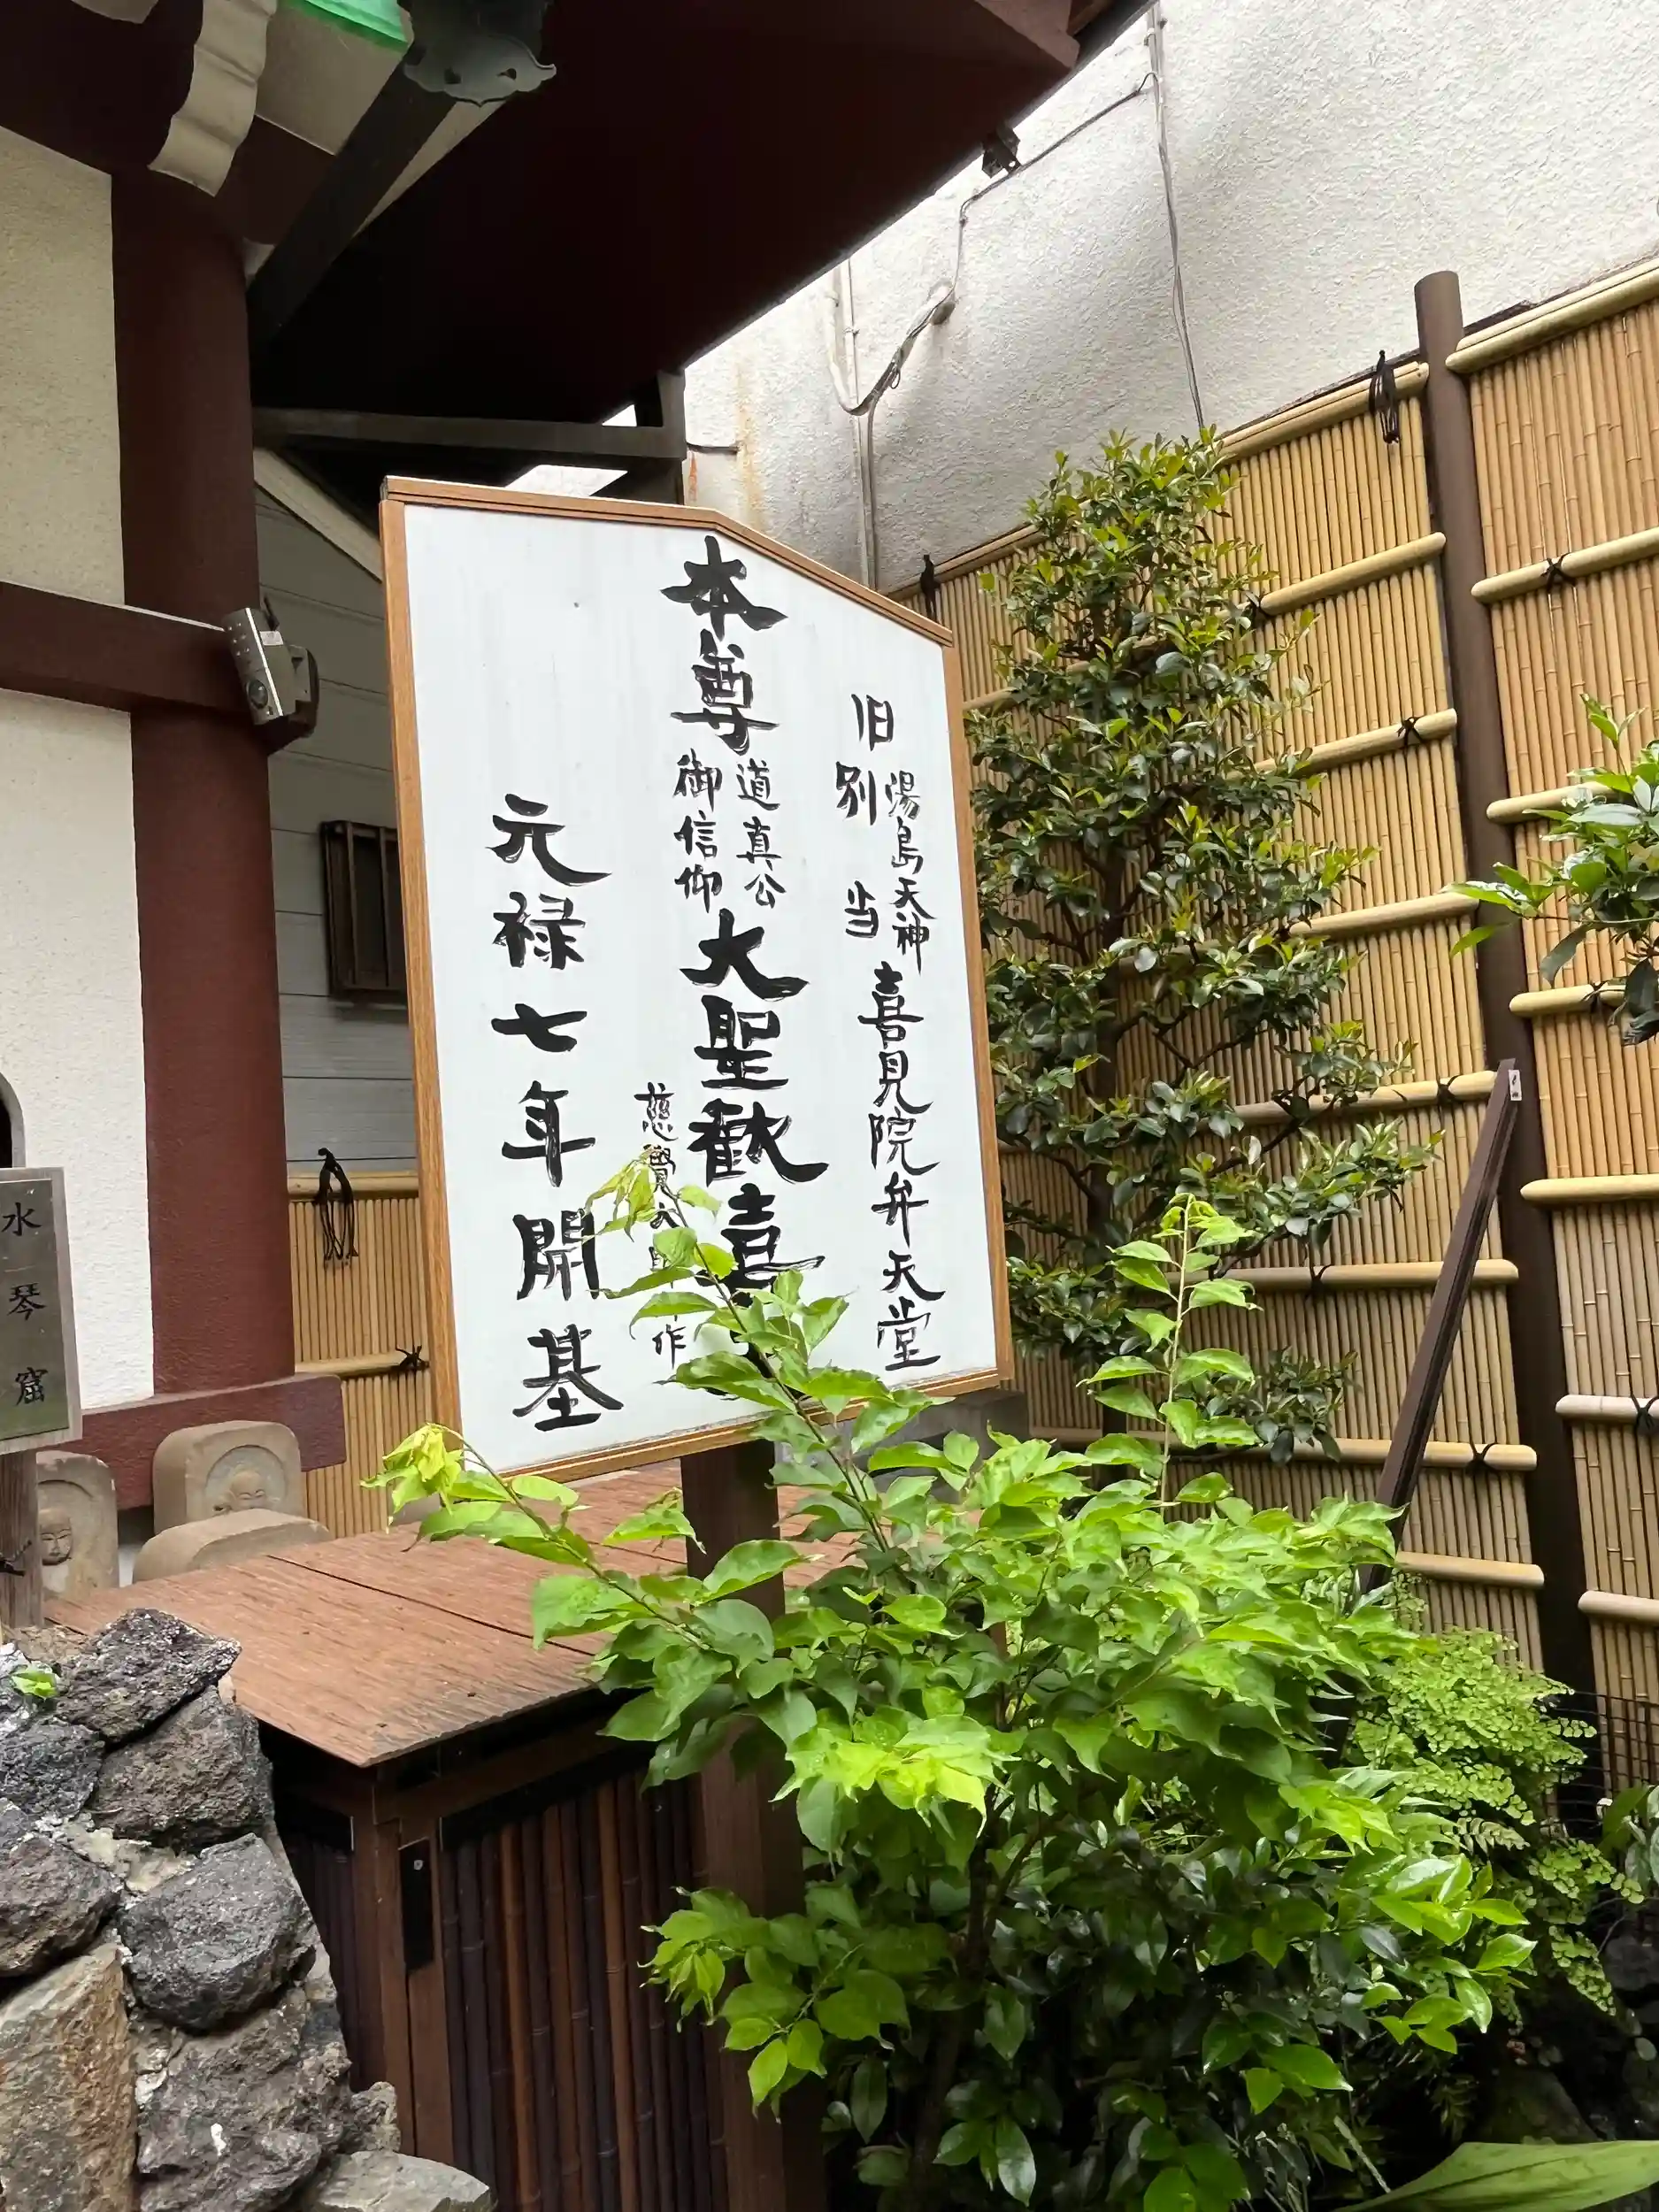 旧
湯島天神
別当
喜見院弁天堂
本尊
道真公
御信仰
大聖歓喜
慈覺大
作
元禄七年開基
水琴窟